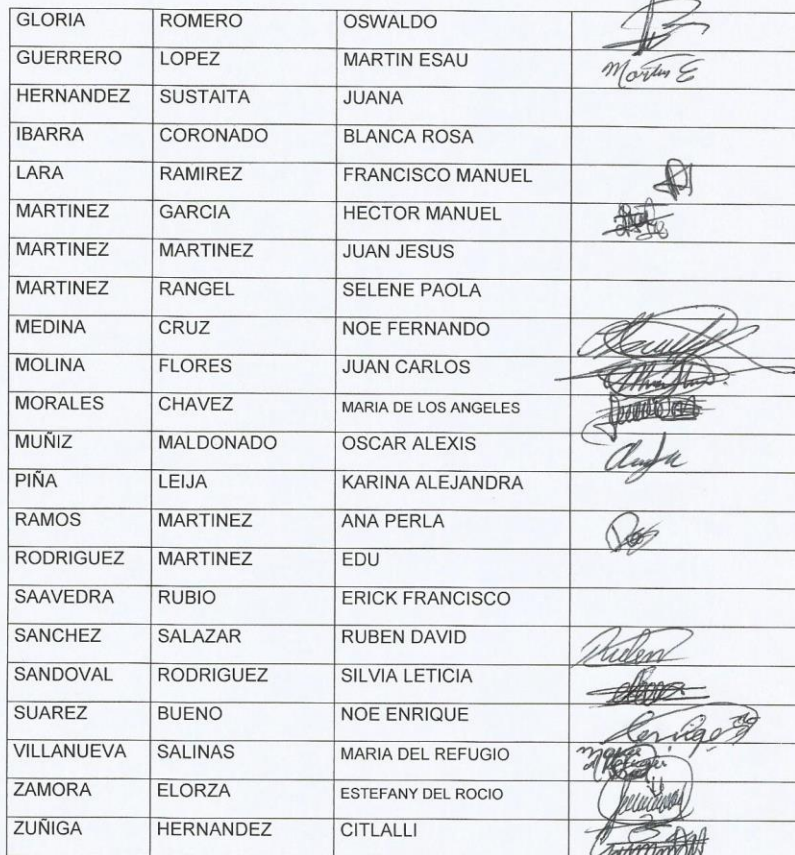 GLORIA ROMERO OSWALDO
GUERRERO LOPEZ MARTIN ESAU Martin E
HERNANDEZ SUSTAITA JUANA
IBARRA CORONADO BLANCA ROSA
LARA RAMIREZ FRANCISCO MANUEL
MARTINEZ GARCIA HECTOR MANUEL
MARTINEZ MARTINEZ JUAN JESUS
MARTINEZ RANGEL SELENE PAOLA
MEDINA CRUZ NOE FERNANDO
MOLINA FLORES JUAN CARLOS
MORALES CHAVEZ MARIA DE LOS ANGELES
MUÑIZ MALDONADO OSCAR ALEXIS
PIÑA LEIJA KARINA ALEJANDRA
RAMOS MARTINEZ ANA PERLA
RODRIGUEZ MARTINEZ EDU
SAAVEDRA RUBIO ERICK FRANCISCO
SANCHEZ SALAZAR RUBEN DAVID Ruben
SANDOVAL RODRIGUEZ SILVIA LETICIA
SUAREZ BUENO NOE ENRIQUE
VILLANUEVA SALINAS MARIA DEL REFUGIO
ZAMORA ELORZA ESTEFANY DEL ROCIO
ZUÑIGA HERNANDEZ CITLALLI